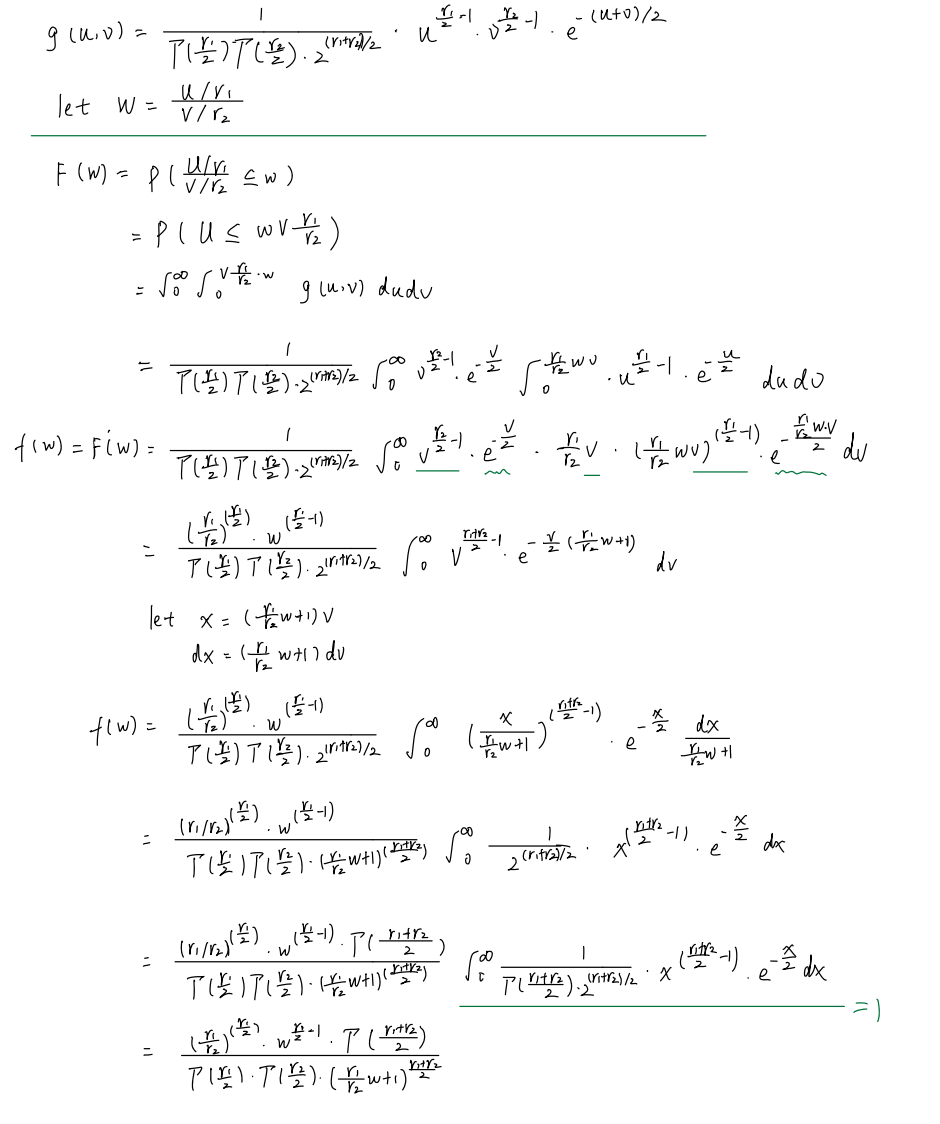 g(u,v) = 1 / (Γ(r₁/2) Γ(r₂/2) · 2^((r₁+r₂)/2)) · u^(r₁/2 -1) · v^(r₂/2 -1) · e^(-(u+v)/2)
let W = (U/r₁) / (V/r₂)
F(w) = P( (U/r₁)/(V/r₂) ≤ w )
= P( U ≤ wV r₁/r₂ )
= ∫₀^∞ ∫₀^(v r₁/r₂ · w) g(u,v) du dv
= 1 / (Γ(r₁/2) Γ(r₂/2) · 2^((r₁+r₂)/2)) ∫₀^∞ v^(r₂/2 -1) · e^(-v/2) ∫₀^(r₁/r₂ wv) · u^(r₁/2 -1) · e^(-u/2) du dv
f(w) = F'(w) = 1 / (Γ(r₁/2) Γ(r₂/2) · 2^((r₁+r₂)/2)) ∫₀^∞ v^(r₂/2 -1) · e^(-v/2) · r₁/r₂ v · (r₁/r₂ wv)^(r₁/2 -1) · e^(-(r₁/r₂ w·v)/2) dv
= ((r₁/r₂)^(r₁/2) · w^(r₁/2 -1)) / (Γ(r₁/2) Γ(r₂/2) · 2^((r₁+r₂)/2)) ∫₀^∞ v^((r₁+r₂)/2 -1) · e^(-v/2 (r₁/r₂ w+1)) dv
let x = (r₁/r₂ w+1) v
dx = (r₁/r₂ w+1) dv
f(w) = ((r₁/r₂)^(r₁/2) · w^(r₁/2 -1)) / (Γ(r₁/2) Γ(r₂/2) · 2^((r₁+r₂)/2)) ∫₀^∞ (x / (r₁/r₂ w+1))^((r₁+r₂)/2 -1) · e^(-x/2) dx / (r₁/r₂ w+1)
= ((r₁/r₂)^(r₁/2) · w^(r₁/2 -1)) / (Γ(r₁/2) Γ(r₂/2) · (r₁/r₂ w+1)^((r₁+r₂)/2)) ∫₀^∞ 1 / 2^((r₁+r₂)/2) · x^((r₁+r₂)/2 -1) · e^(-x/2) dx
= ((r₁/r₂)^(r₁/2) · w^(r₁/2 -1) · Γ((r₁+r₂)/2)) / (Γ(r₁/2) Γ(r₂/2) · (r₁/r₂ w+1)^((r₁+r₂)/2)) ∫₀^∞ 1 / (Γ((r₁+r₂)/2) · 2^((r₁+r₂)/2)) · x^((r₁+r₂)/2 -1) · e^(-x/2) dx = 1
= ((r₁/r₂)^(r₁/2) · w^(r₁/2 -1) · Γ((r₁+r₂)/2)) / (Γ(r₁/2) · Γ(r₂/2) · (r₁/r₂ w+1)^((r₁+r₂)/2))